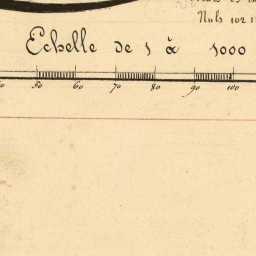 Nuls 102 1
Echelle de 1 à 1000
50 60 70 80 90 100